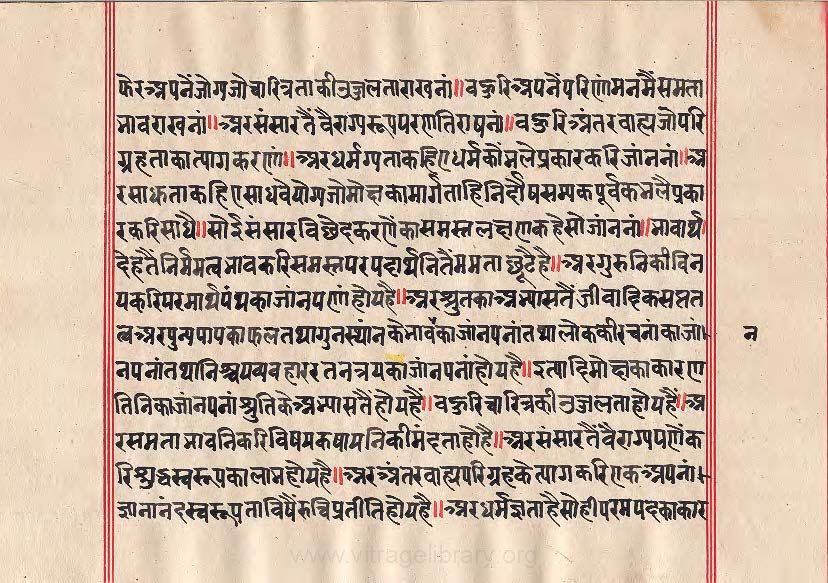 फेर अपनें जोग्य जो चारित्र ताकी उज्जलता राखनां॥ बहुरि अपनें परिणांमन मैं समता
भाव राखनां॥ अर संसार तैं वैराग्यरूप परणति राषनां॥ बहुरि अंतर वाह्य जो परि
ग्रह ताका त्याग करणां॥ अर धर्मग्यता कहिए धर्म कौं भलै प्रकार करि जांननां॥ अ
र साधकता कहिए साधवे योग्य जो मोक्ष का मार्ग ताहि निर्दोष सम्यक पूर्वक भलै प्रका
र करि साधै॥ सो ईं संसार विछेद करणें का समस्त लक्षण कहै सो जांननां॥ भावार्थ
देह तैं निर्ममत्व भाव करि समस्त पर पदार्थनि तैं ममता छूटै है॥ अर गुरुनि की विन
य करि परमार्थ पंथ का जांनपणां होय है॥ अर श्रुत का अभ्यास तैं जीवादिक सप्त त
त्व अर पुन्य पाप का फल तथा गुनस्थांन के भाव का जांनपनां तथा लोक की रचनां का जां
न
नपनां तथा निश्चय व्यवहार रतनत्रय का जांनपनां होय है॥ इत्यादि मोक्ष का कारण
तिनि का जांनपनां श्रुति के अभ्यास तैं होय है॥ बहुरि चारित्र की उज्जलता होय है॥ अ
र समता भावनि करि विषय कषायनि की मंदता हो है॥ अर संसार तैं वैराग्यपणें क
रि शुद्ध स्वरूप का लाभ होय है॥ अर अंतर वाह्य परिग्रह के त्याग करि एक अपनां
ज्ञानानंद स्वरूप ता विषैं रुचि प्रतीति होय है॥ अर धर्मज्ञता है सो ही परम पद का कार
www.vitragelibrary.org